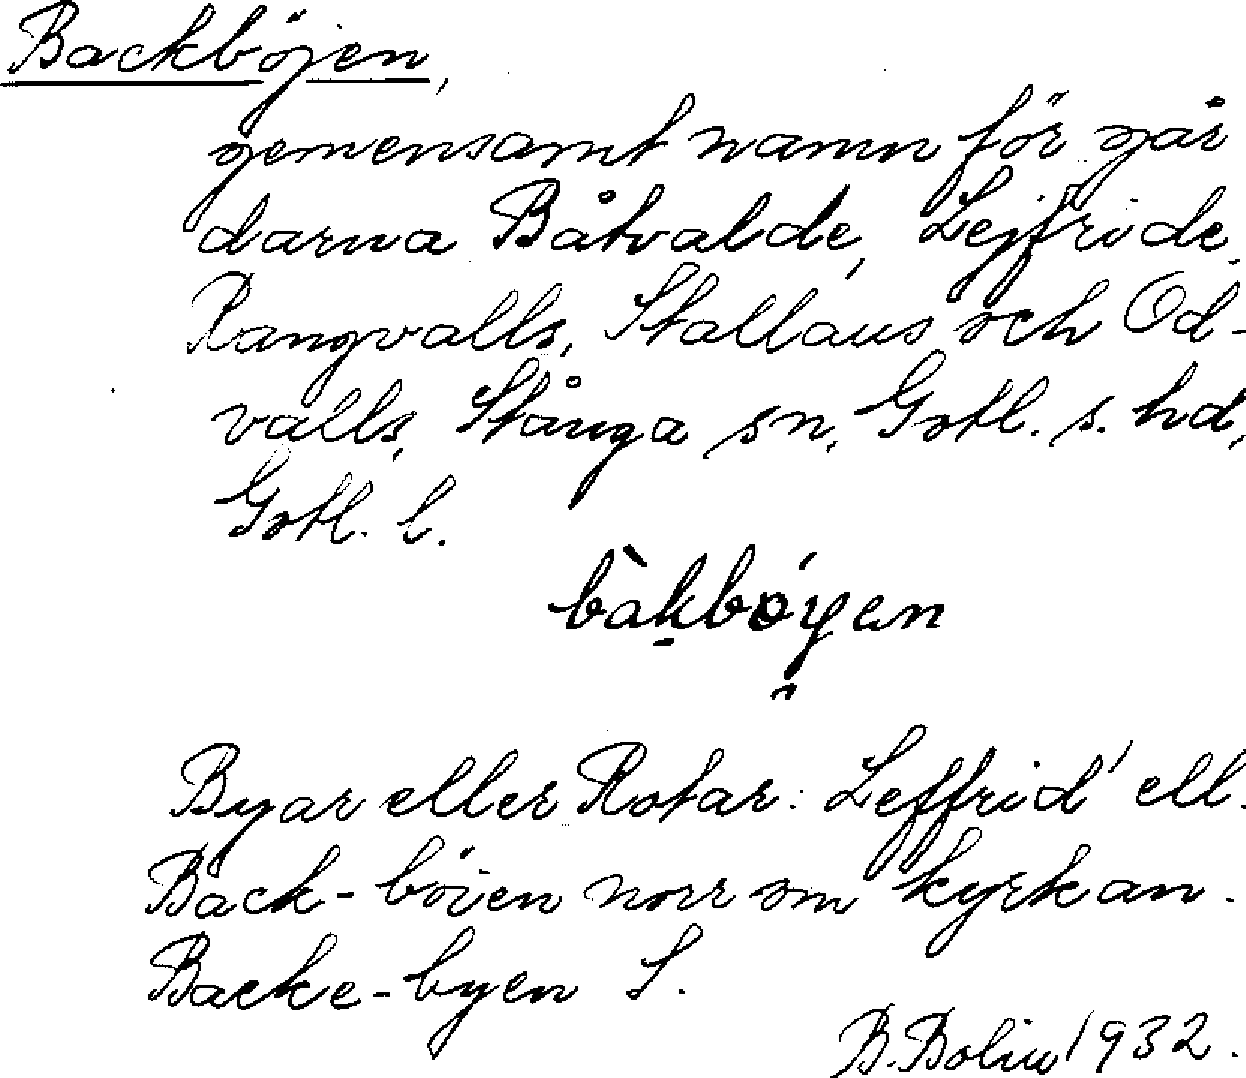 Backböjen,
gemensamt namn för går
darna Båtvalde, Lejfride,
Rangvalls, Stallaus och Od-
valls, Stånga sn, Gotl. s. hd,
Gotl. l.
bàkbǿyen
Byar eller Rotar: Leffrid' ell.
Back-böien norr om kyrkan.
Backe-byen S.
B. Bolin 1932.